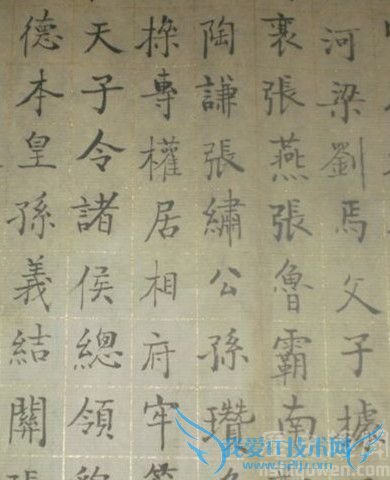 河梁劉焉父子據
襄張燕張魯霸南
陶謙張繡公孫瓚
操專權居相府牢
天子令諸侯總領
德本皇孫義結關
我爱IT技术网